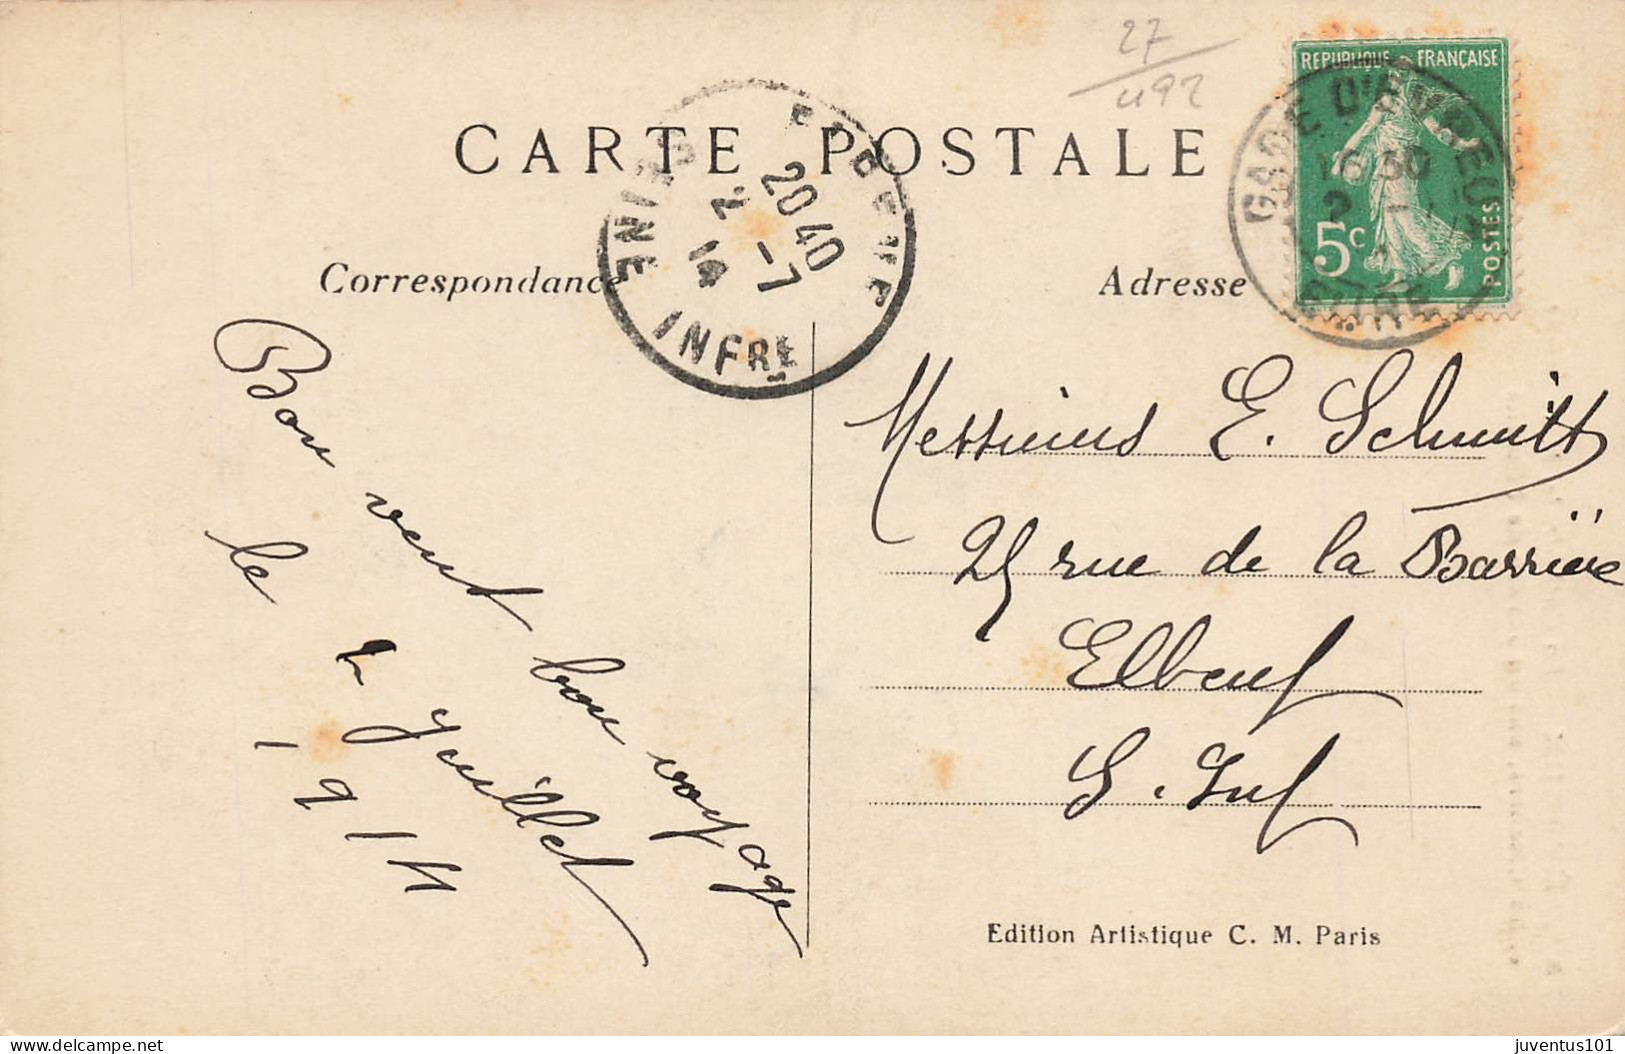 27
492
REPUBLIQUE FRANÇAISE
5c
POSTES
GARE D'EVREUX
16 30
2
EURE
CARTE POSTALE
ELBEUF
20 40
2 -7
14
SEINE INFRE
Correspondance
Adresse
Bon vent bon voyage
le 2 Juillet
1914
Messieurs E. Schmitt
25 rue de la Barrière
Elbeuf
S. Inf
Edition Artistique C. M. Paris
juventus101